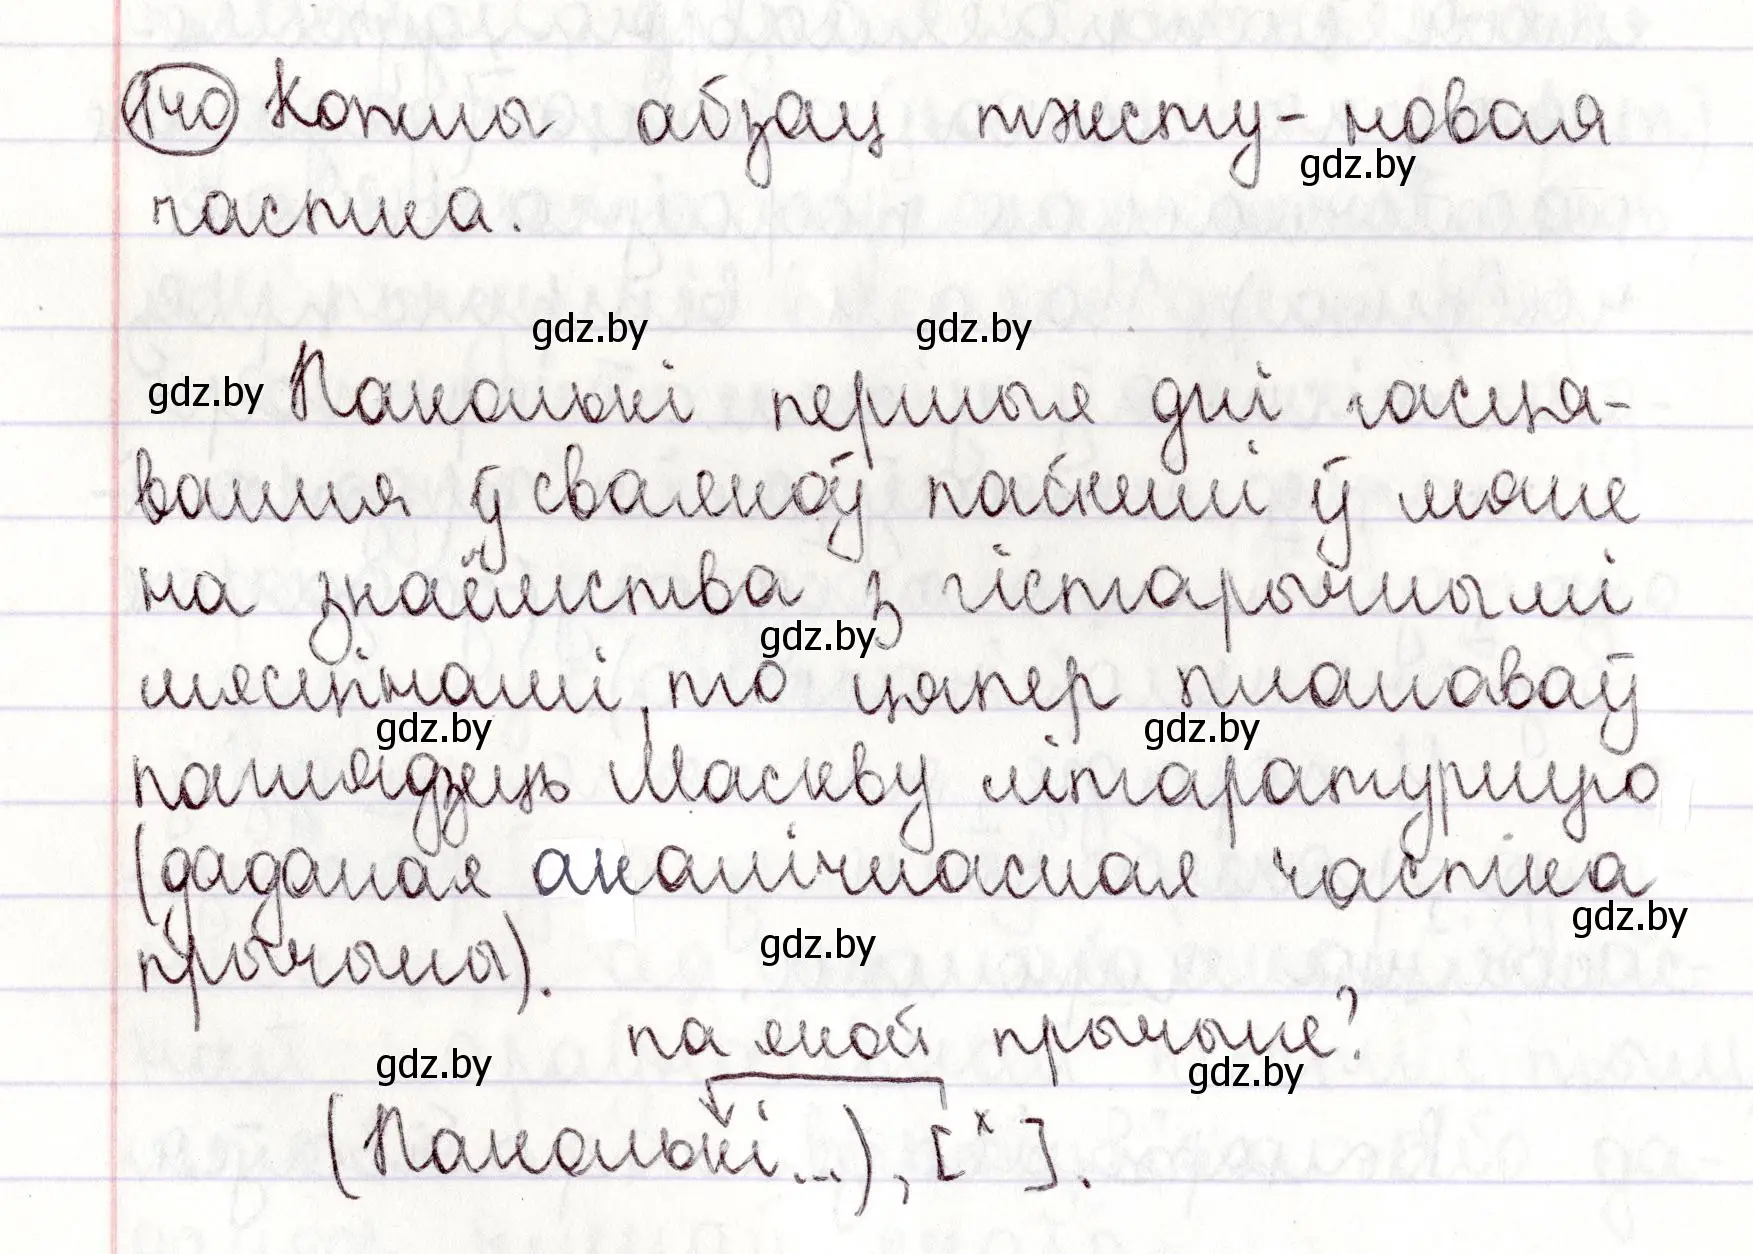 140 Кожны абзац тэксту - новая
gdz.by
частка.
gdz.by gdz.by
gdz.by Паколькі першыя дні гасця-
вання ў сваякоў пабеглі ў мяне
на знаёмства з гістарычнымі
gdz.by
мясцінамі, то цяпер планаваў
gdz.by gdz.by
паглядзець Маскву літаратурную
(даданая акалічнасная частка
gdz.by
прычыны). gdz.by
па якой прычыне?
gdz.by gdz.by
(Паколькі...), [ x ].